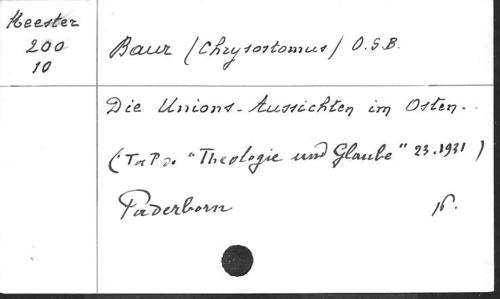 Heester
200
10
Baur (Chrysostomus) O.S.B.
Die Unions-Aussichten im Osten.
"Theologie und Glaube" 23.1931)
Paderborn